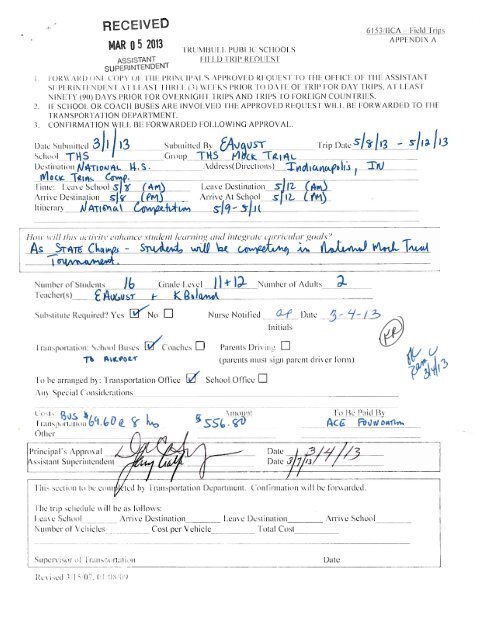 RECEIVED
MAR 05 2013
ASSISTANT
SUPERINTENDENT
6153/IICA – Field Trips
APPENDIX A
TRUMBULL PUBLIC SCHOOLS
FIELD TRIP REQUEST
1. FORWARD ONE COPY OF THE PRINCIPAL'S APPROVED REQUEST TO THE OFFICE OF THE ASSISTANT
SUPERINTENDENT AT LEAST THREE (3) WEEKS PRIOR TO DATE OF TRIP FOR DAY TRIPS, AT LEAST
NINETY (90) DAYS PRIOR FOR OVERNIGHT TRIPS AND TRIPS TO FOREIGN COUNTRIES.
2. IF SCHOOL OR COACH BUSES ARE INVOLVED THE APPROVED REQUEST WILL BE FORWARDED TO THE
TRANSPORTATION DEPARTMENT.
3. CONFIRMATION WILL BE FORWARDED FOLLOWING APPROVAL.
Date Submitted 3/1/13 Submitted By EAugust Trip Date 5/8/13 - 5/12/13
School THS Group THS Mock TRIAL
Destination NATIONAL H.S. Address(Directions) Indianapolis, IN
Mock TRIAL Comp.
Time: Leave School 5/8 (AM) Leave Destination 5/12 (Am)
Arrive Destination 5/8 (PM) Arrive At School 5/12 (PM)
Itinerary NATIONAL Competition 5/9-5/11
How will this activity enhance student learning and integrate curricular goals?
As STATE Champs - Students will be competing in National Mock Trial
Tournament.
Number of Students 16 Grade Level 11+12 Number of Adults 2
Teacher(s) EAugust + KBoland
Substitute Required? Yes No Nurse Notified ap Date 3-4-13
Initials
KR
Transportation: School Buses Coaches Parents Driving
TO AIRPORT (parents must sign parent driver form)
3/4/13
To be arranged by: Transportation Office School Office
Any Special Considerations
Costs Amount To Be Paid By
Transportation BUS $69.60 @ 8 hrs $556.80 ACE FOUNDATION
Other
Principal's Approval Date 3/4/13
Assistant Superintendent Date 3/7/13
This section to be completed by Transportation Department. Confirmation will be forwarded.
The trip schedule will be as follows:
Leave School Arrive Destination Leave Destination Arrive School
Number of Vehicles Cost per Vehicle Total Cost
Supervisor of Transportation Date
Revised 3/15/07, 01/08/09